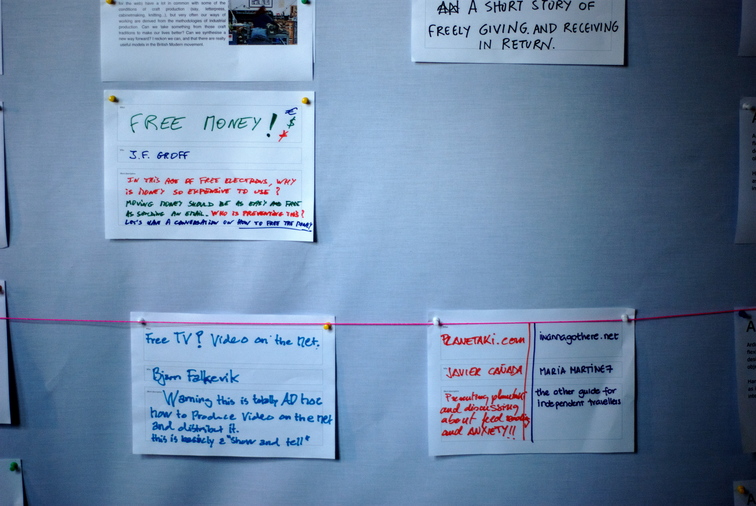 for this work) have a lot in common with some of the
contexts of craft production (say, letterpress,
cabinetmaking, knitting..), but very often our ways of
working are derived from the methodologies of industrial
production. Can we take something from these craft
traditions to make our lives better? Can we synthesize a
new way forward? I reckon we can, and that there are really
useful models in the British Studion movement.
A SHORT STORY OF
FREELY GIVING AND RECEIVING
IN RETURN.
FREE MONEY! € $
J.F. GROFF
IN THIS AGE OF FREE ELECTRONS, WHY
IS MONEY SO EXPENSIVE TO USE?
MOVING MONEY SHOULD BE AS EASY AND FREE
AS SENDING AN EMAIL. WHO IS PREVENTING THIS?
LET'S HAVE A CONVERSATION ON HOW TO FREE THE MONEY
Free TV? Video on the Net.
Bjørn Falkevik
Warning this is totally AD hoc
how to Produce Video on the net
and distribut it.
this is basicly a "Show and tell"
PLANETAKI.com
JAVIER CAÑADA
Presenting planetaki
and discussing
about feed reading
and ANXIETY!!
iwannagothere.net
MARÍA MARTÍNEZ
the other guide for
independent travellers